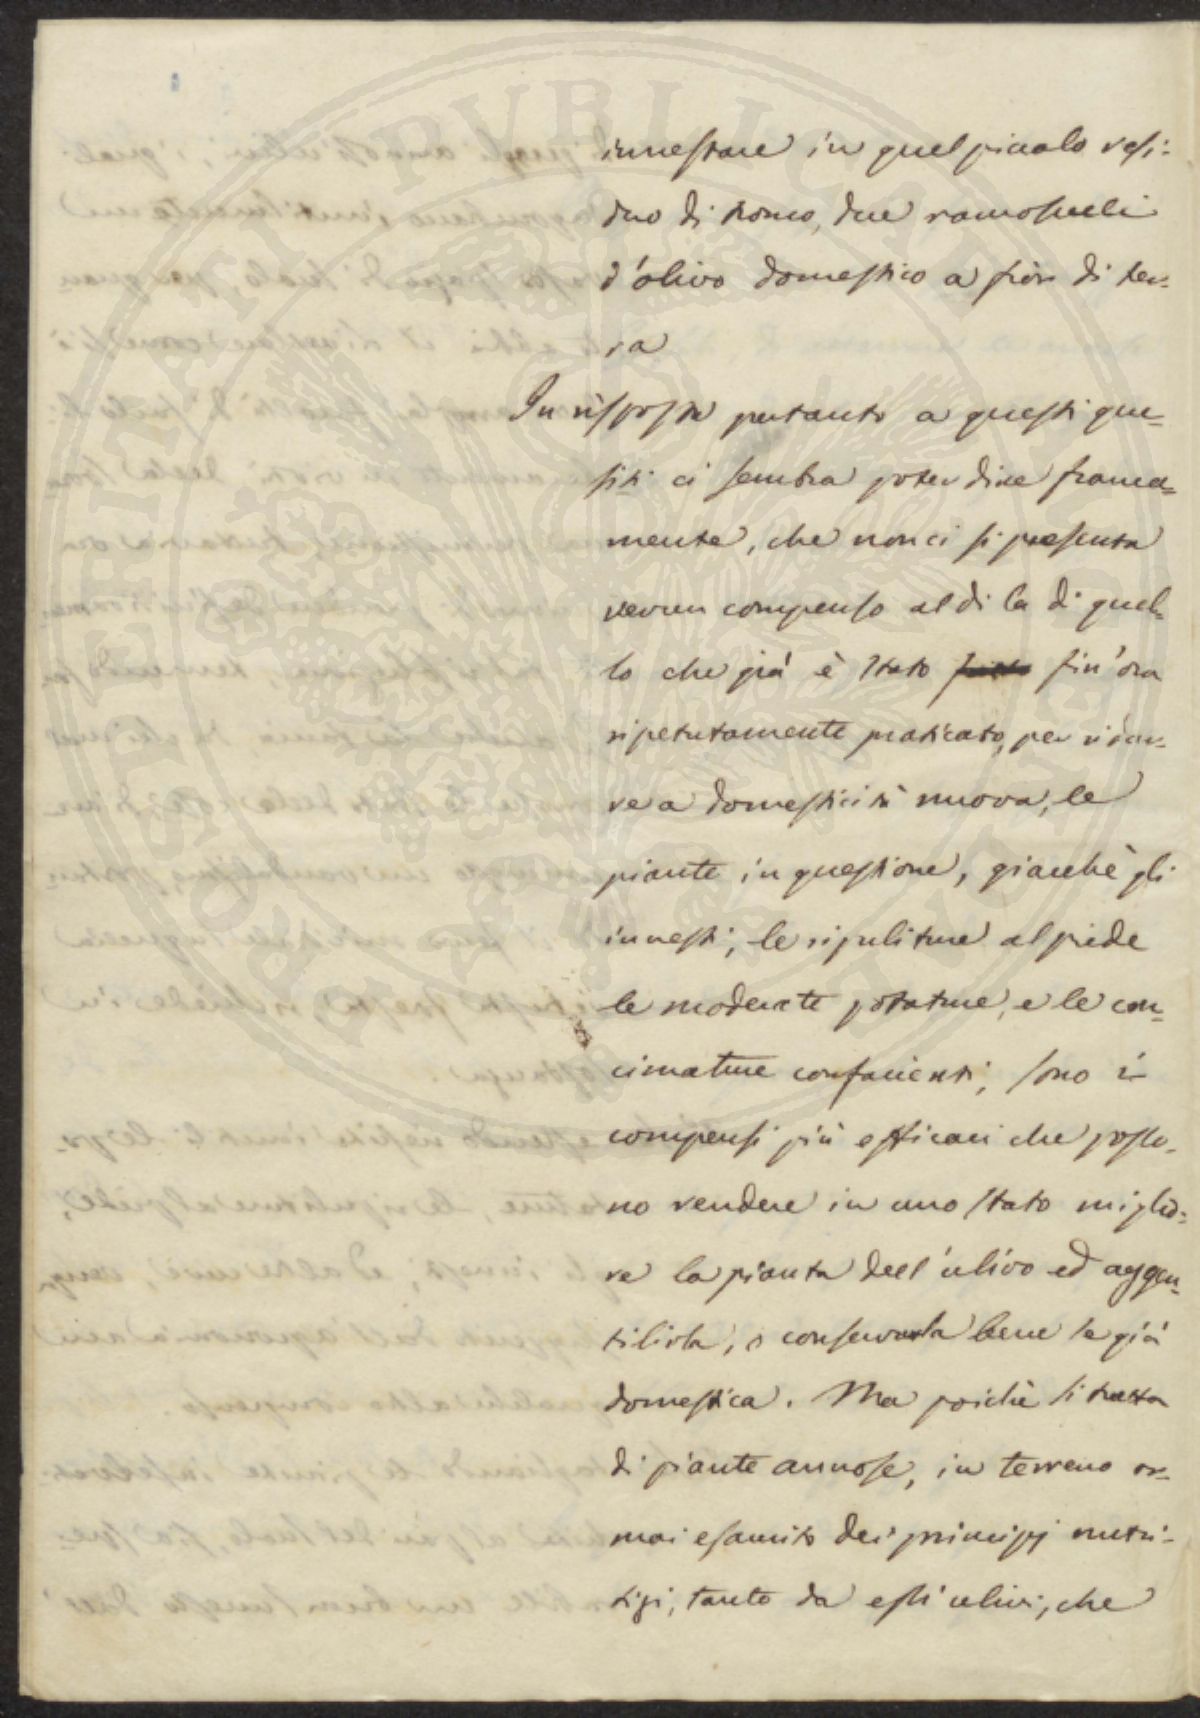 innestare in quel piccolo resi-
duo di tronco, due ramoscelli
d'olivo domestico a fior di ter-
ra
In risposta pertanto a questi que-
siti ci sembra poter dire franca-
mente, che non ci si presenta
verun compenso al di la di quel-
lo che già è stato fin'ora
ripetutamente praticato, per ridur-
re a domesticità nuova, le
piante in questione, giacchè gli
innesti, le ripuliture al piede
le moderate potature, e le con-
cimature confacienti, sono i
compensi più efficaci che posso-
no rendere in uno stato miglio-
re la pianta dell'ulivo ed aggen-
tilirla, o conservarla bene se già
domestica. Ma poichè si tratta
di piante annose, in terreno or-
mai esaurito dei principj nutri-
tizi, tanto da essi ulivi, che